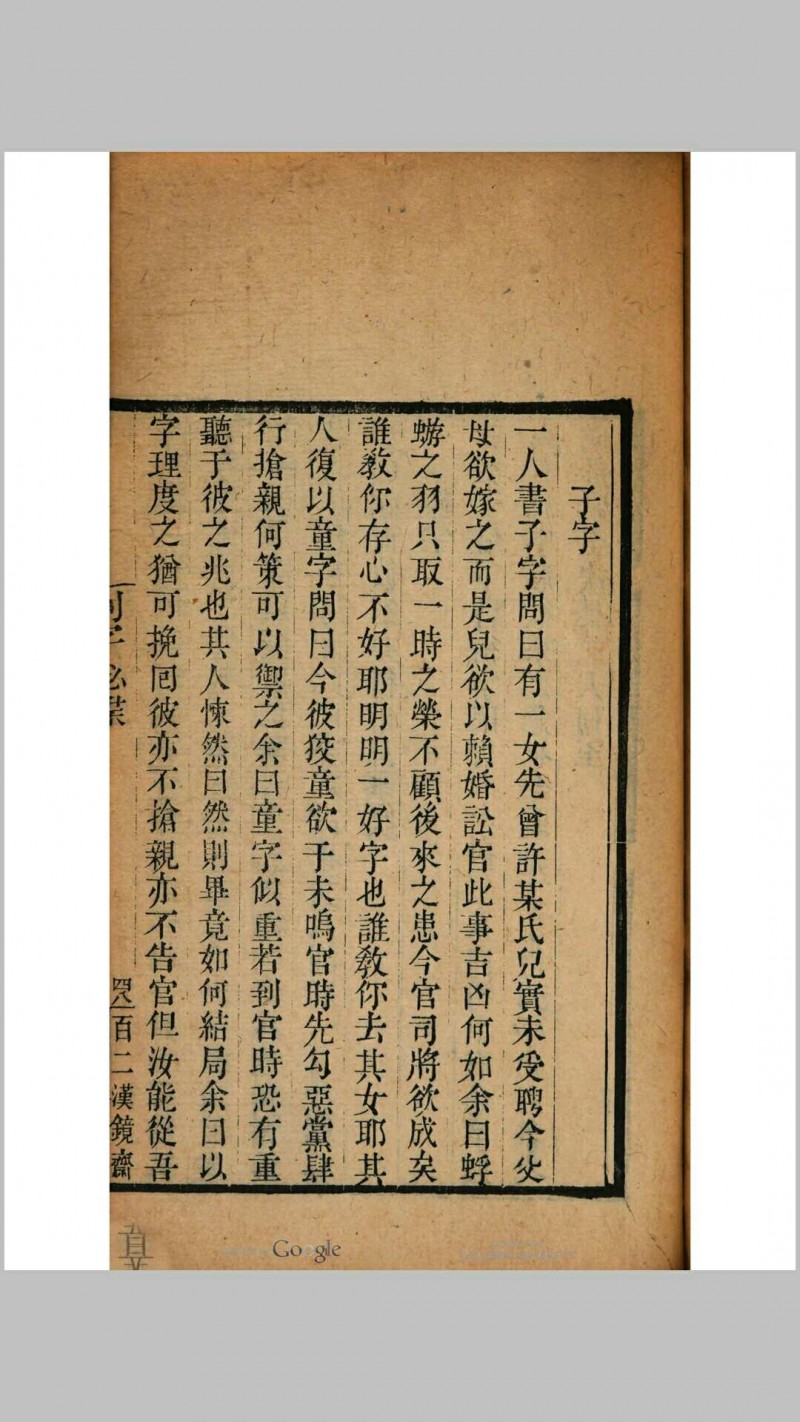 子字
一人書子字問曰有一女先曾許某氏兒實未受聘今父
母欲嫁之而是兒欲以賴婚訟官此事吉凶何如余曰蜉
蝣之羽只取一時之榮不顧後來之患今官司將欲成矣
誰教你存心不好耶明明一好字也誰教你去其女耶其
人復以童字問曰今彼狡童欲于未鳴官時先勾惡黨肆
行搶親何策可以禦之余曰童字似重若到官時恐有重
聽于彼之兆也其人悚然曰然則畢竟如何結局余曰以
字理度之猶可挽囘彼亦不搶親亦不告官但汝能從吾
百二漢鏡齋
Google